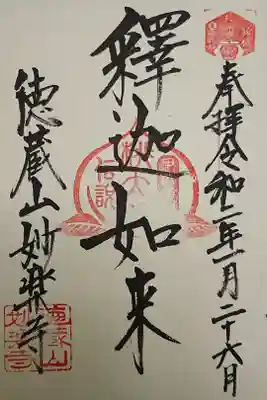 奉拝令和二年一月二十六日
釋迦如来
徳蔵山妙楽寺